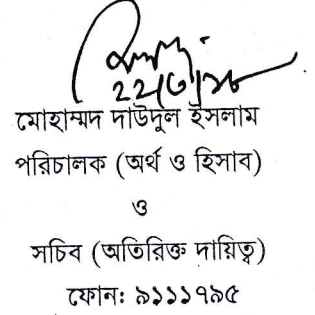 ২২/৩/১৮
মোহাম্মদ দাউদুল ইসলাম
পরিচালক (অর্থ ও হিসাব)
ও
সচিব (অতিরিক্ত দায়িত্ব)
ফোন: ৯১১১৭৯৫